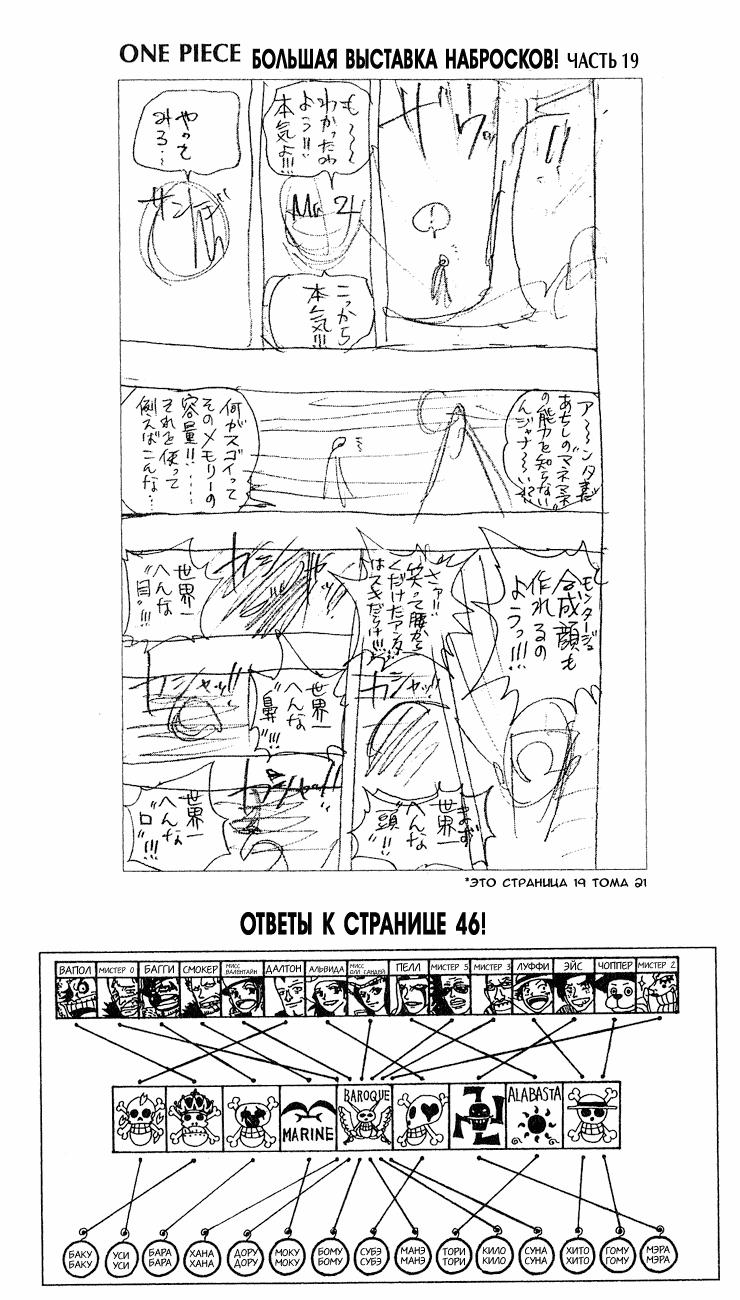 ONE PIECE БОЛЬШАЯ ВЫСТАВКА НАБРОСКОВ! ЧАСТЬ 19
も〜〜
わかったわ
よう!!
本気よ!!!
Mr 2
こっから
本気!!!
やって
みろ…
サンジ
ア〜〜ンタまだ
あちしの"マネマネ"
の能力を知らない
んジャナ〜〜い!?
何がスゴイって
そのメモリーの
容量!!……
それを使って
例えばこんな…
モンタージュ
合成顔も
作れるの
ようっ!!!
さァ!!
笑って腰から
くだけたアンタ
はスキだらけ!!!
カシャッ!!
まず
世界一
へんな
"頭"!!!
世界一
へんな
"目"!!!
世界一
へんな
"鼻"!!!
カシャッ!!
世界一
へんな
"口"!!!
*ЭТО СТРАНИЦА 19 ТОМА 21
ОТВЕТЫ К СТРАНИЦЕ 46!
ВАПОЛ МИСТЕР 0 БАГГИ СМОКЕР МИСС ВАЛЕНТАЙН ДАЛТОН АЛЬВИДА МИСС ОЛЛ САНДЕЙ ПЕЛЛ МИСТЕР 5 МИСТЕР 3 ЛУФФИ ЭЙС ЧОППЕР МИСТЕР 2
MARINE BAROQUE ALABASTA
БАКУ БАКУ
УСИ УСИ
БАРА БАРА
ХАНА ХАНА
ДОРУ ДОРУ
МОКУ МОКУ
БОМУ БОМУ
СУБЭ СУБЭ
МАНЭ МАНЭ
ТОРИ ТОРИ
КИЛО КИЛО
СУНА СУНА
ХИТО ХИТО
ГОМУ ГОМУ
МЭРА МЭРА